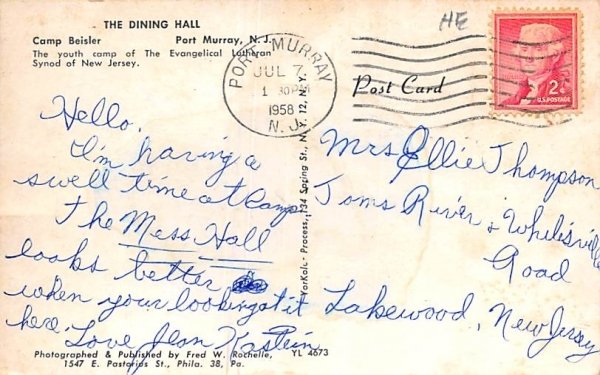 THE DINING HALL
Camp Beisler Port Murray, N. J.
The youth camp of The Evangelical Lutheran
Synod of New Jersey.
HE
PORT MURRAY
JUL 7
1 30 PM
1958
N. J.
Post Card
2¢
U.S. POSTAGE
Hello,
I'm having a
swell time at Camp
The Mess Hall
looks better
when your looking at it
here.
Love Jean
YorKolor Process, 134 Spring St., N. Y. 12, N. Y.
Mrs Ellie Thompson
Toms River & Whitesville
Road
Lakewood, New Jersey
Photographed & Published by Fred W. Rochelle, YL 4673
1547 E. Pastorius St., Phila. 38, Pa.